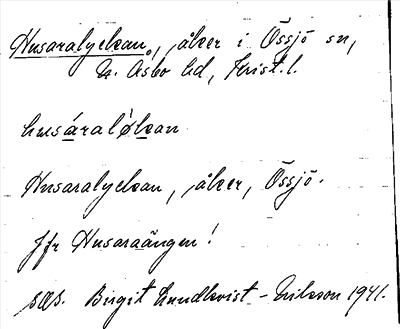 Husaralyckan, åker i Össjö sn,
N. Åsbo hd, Krist. l.
husáraløkan
Husaralyckan, åker, Össjö.
Jfr Husaraängen!
sas. Birgit Lundkvist-Eriksson 1941.